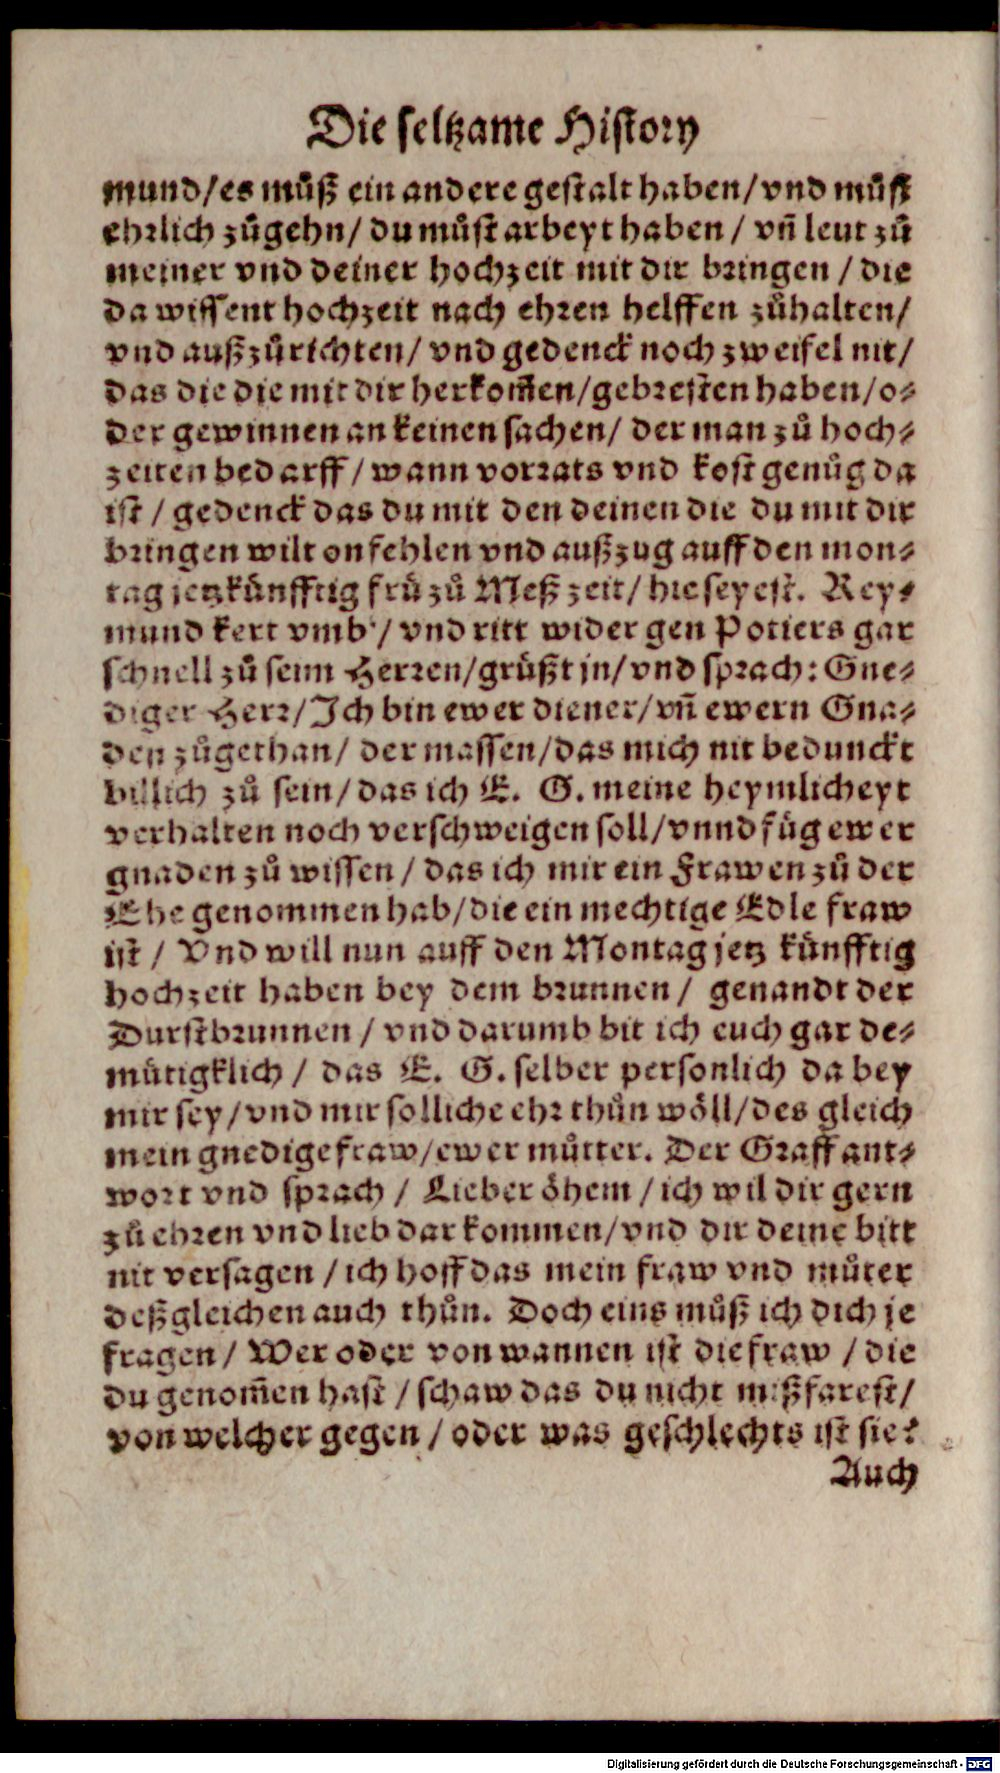 Die ſeltzame Hiſtory
mund/es muͦß ein andere geſtalt haben/vnd muͦſſ
ehrlich zuͦgehn/ du muͦſt arbeyt haben / vñ leut zuͦ
meiner vnd deiner hochzeit mit dir bringen / die
da wiſſent hochzeit nach ehren helffen zuͦhalten/
vnd außzuͦrichten/ vnd gedenck noch zweifel nit/
das die die mit dir herkom̃en/gebreſten haben/o⸗
der gewinnen an keinen ſachen/ der man zuͦ hoch⸗
zeiten bedarff / wann vorrats vnd koſt genuͦg da
iſt / gedenck das du mit den deinen die du mit dir
bringen wilt on fehlen vnd außzug auff den mon⸗
tag jetzkuͤnfftig fruͤ zuͦ Meß zeit/ hie ſeyeſt. Rey⸗
mund kert vmb / vnd ritt wider gen Potiers gar
ſchnell zuͦ ſeim Herren/gruͤßt jn/vnd ſprach: Gne⸗
diger Herr/Ich bin ewer diener/vñ ewern Gna⸗
den zuͦgethan/ der maſſen/das mich nit bedunckt
billich zuͦ ſein/das ich E. G. meine heymlicheyt
verhalten noch verſchweigen ſoll/vnnd fuͤg ewer
gnaden zuͦ wiſſen / das ich mir ein Frawen zuͦ der
Ehe genommen hab/die ein mechtige Edle fraw
iſt / Vnd will nun auff den Montag jetz kuͤnfftig
hochzeit haben bey dem brunnen / genandt der
Durſtbrunnen / vnd darumb bit ich euch gar de⸗
muͤtigklich / das E. G. ſelber perſonlich da bey
mir ſey/vnd mir ſolliche ehr thuͦn woͤll/des gleich
mein gnedige fraw/ewer muͦtter. Der Graff ant⸗
wort vnd ſprach / Lieber oͤhem / ich wil dir gern
zuͦ ehren vnd lieb dar kommen/vnd dir deine bitt
nit verſagen / ich hoff das mein fraw vnd muͦter
deßgleichen auch thuͦn. Doch eins muͦß ich dich je
fragen / Wer oder von wannen iſt die fraw / die
du genom̃en haſt / ſchaw das du nicht mißfareſt/
von welcher gegen / oder was geſchlechts iſt ſie?
Auch
Digitalisierung gefördert durch die Deutsche Forschungsgemeinschaft - DFG